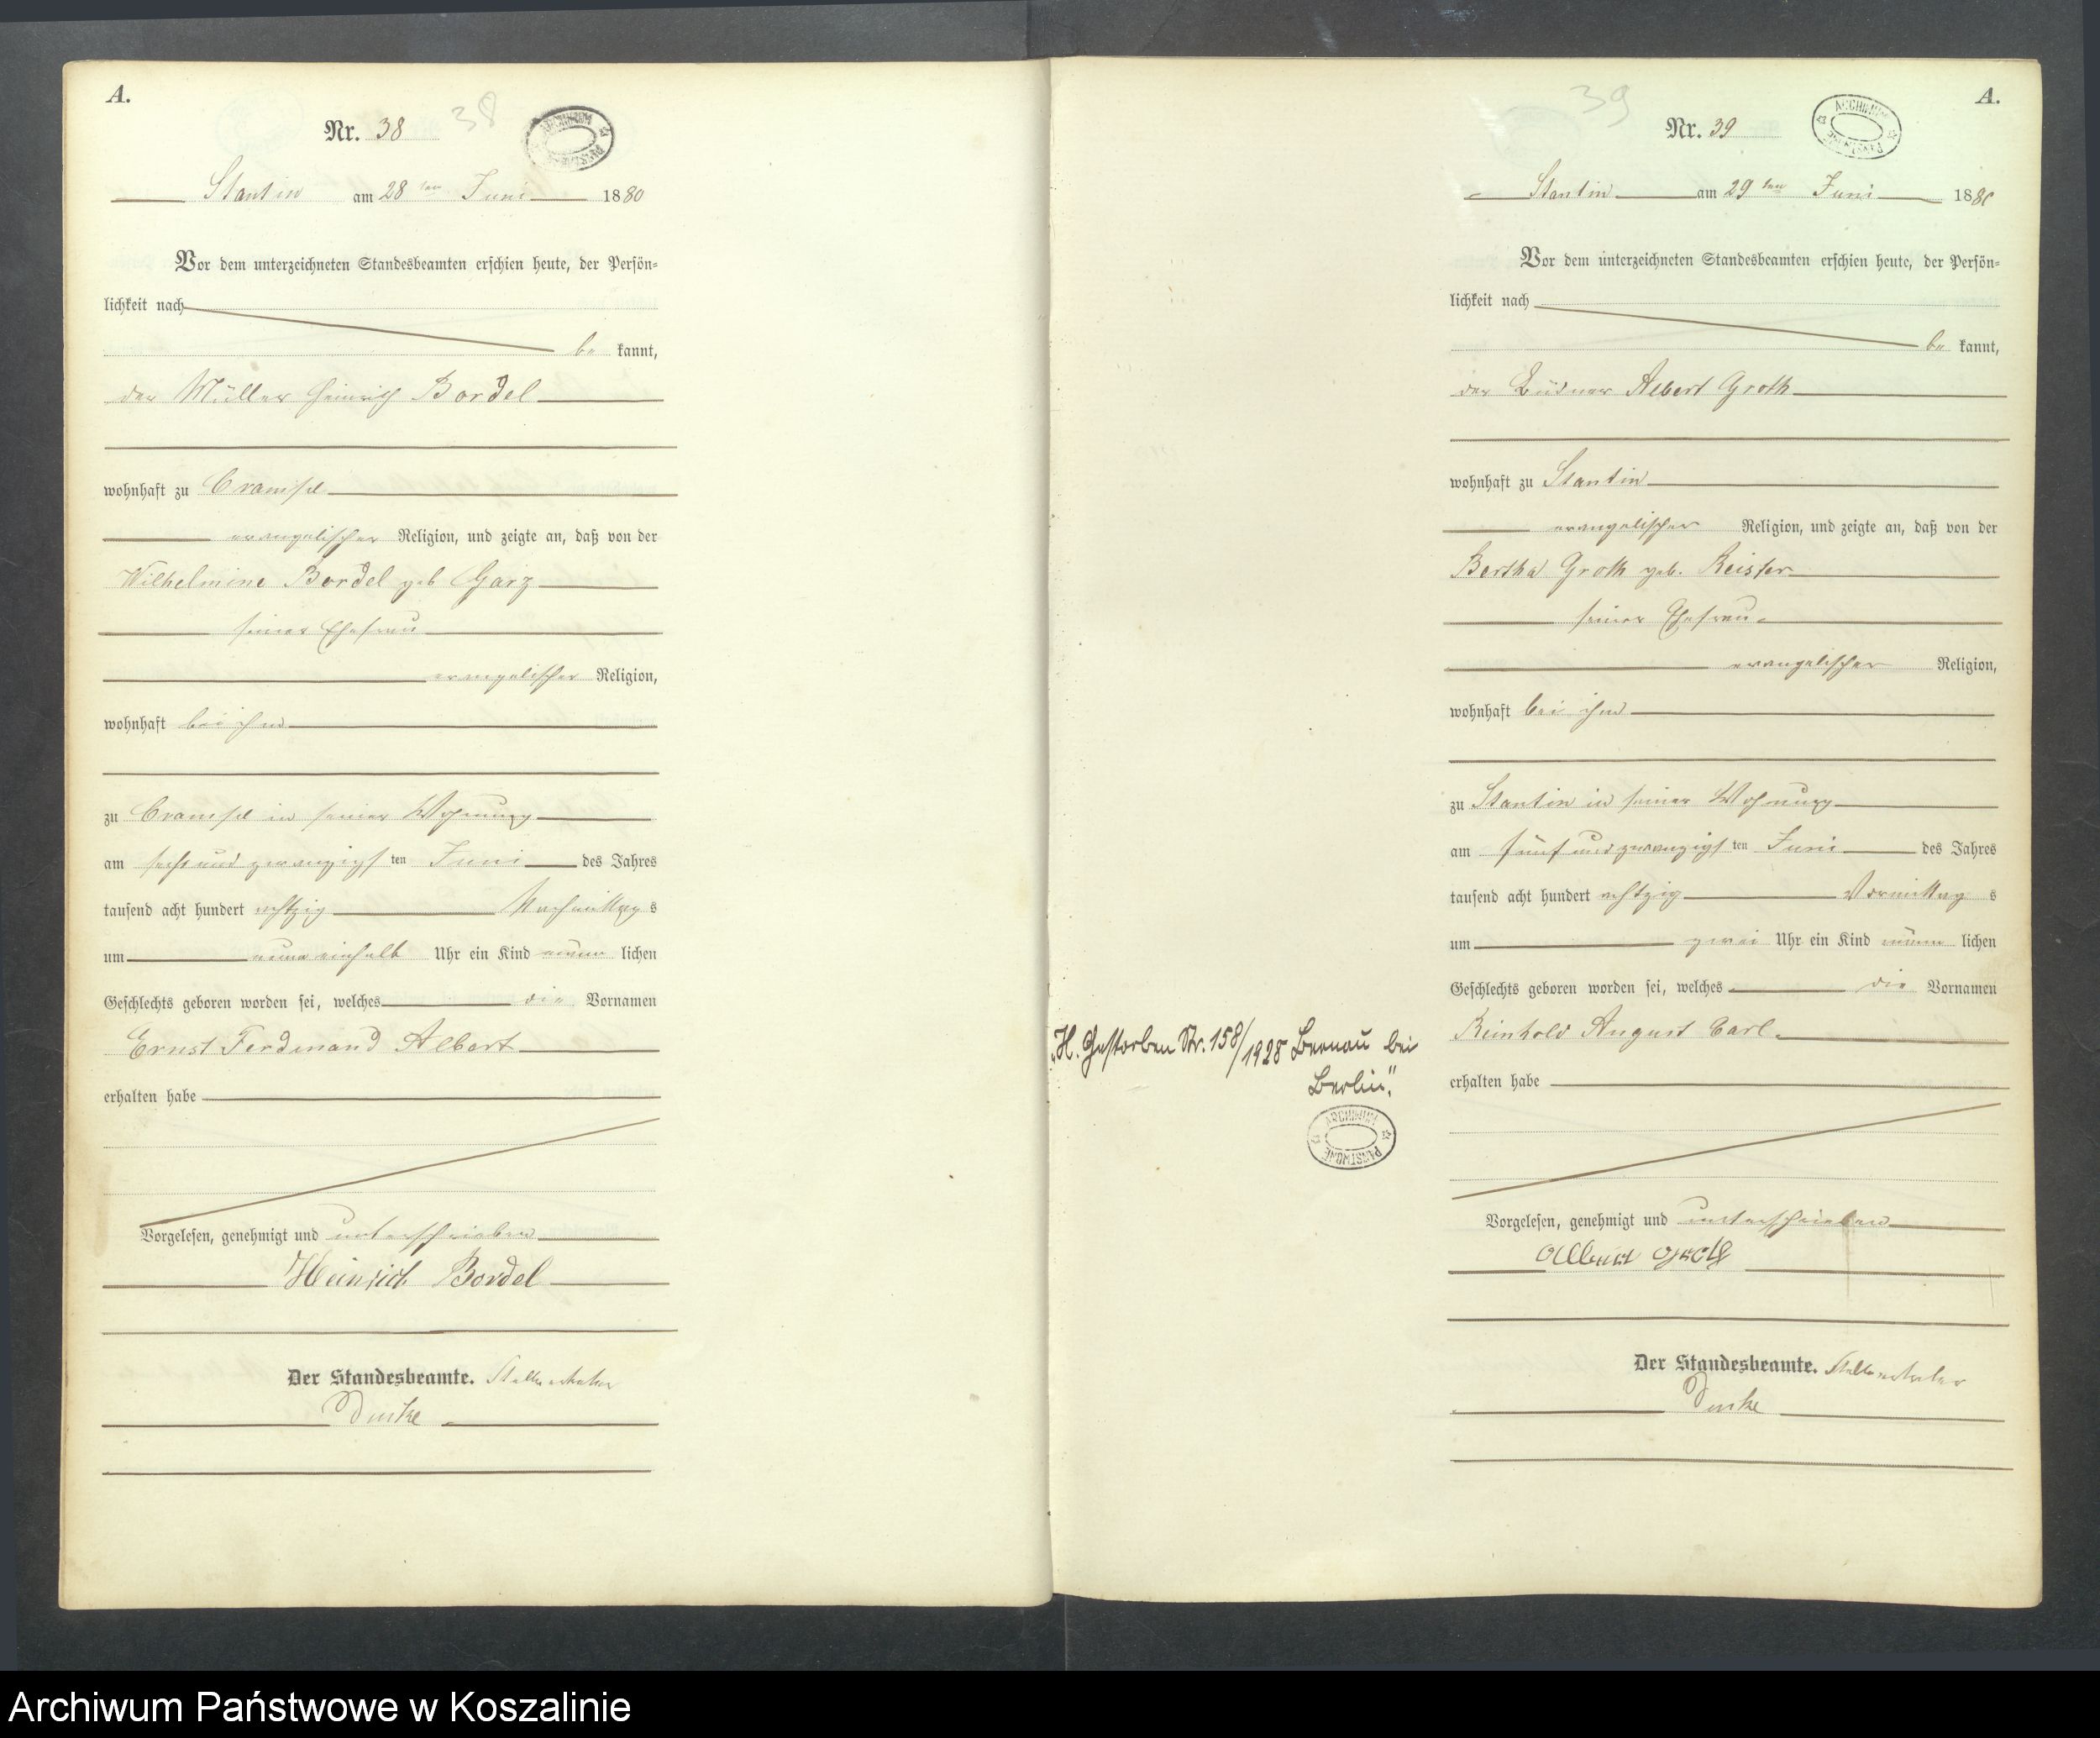 A.
Nr. 38 38
ARCHIWUM PAŃSTWOWE
Stantin am 28ten Juni 1880
Vor dem unterzeichneten Standesbeamten erschien heute, der Persön-
lichkeit nach
be kannt,
der Müller Heinrich Bordel
wohnhaft zu
evangelischer Religion, und zeigte an, daß von der
Wilhelmine Bordel geb Garz
seiner Ehefrau
evangelischer Religion,
wohnhaft bei ihm
zu in seiner Wohnung
am sechsundzwanzigsten Juni des Jahres
tausend acht hundert achtzig Nachmittags
um neuneinhalb Uhr ein Kind männlichen
Geschlechts geboren worden sei, welches die Vornamen
Ernst Ferdinand Albert
erhalten habe
Vorgelesen, genehmigt und unterschrieben
Heinrich Bordel
Der Standesbeamte. Stellvertreter
A.
39
Nr. 39
ARCHIWUM PAŃSTWOWE
Stantin am 29ten Juni 1880
Vor dem unterzeichneten Standesbeamten erschien heute, der Persön-
lichkeit nach
be kannt,
der Büdner Albert Groth
wohnhaft zu Stantin
evangelischer Religion, und zeigte an, daß von der
Bertha Groth geb. Reister
seiner Ehefrau
evangelischer Religion,
wohnhaft bei ihm
zu Stantin in seiner Wohnung
am fünfundzwanzigsten Juni des Jahres
tausend acht hundert achtzig Vormittags
um zwei Uhr ein Kind männlichen
Geschlechts geboren worden sei, welches die Vornamen
Reinhold August Carl
erhalten habe
Vorgelesen, genehmigt und unterschrieben
Albert Groth
Der Standesbeamte. Stellvertreter
„H. Gestorben Nr. 158/1928 Bernau bei
Berlin".
ARCHIWUM PAŃSTWOWE
Archiwum Państwowe w Koszalinie